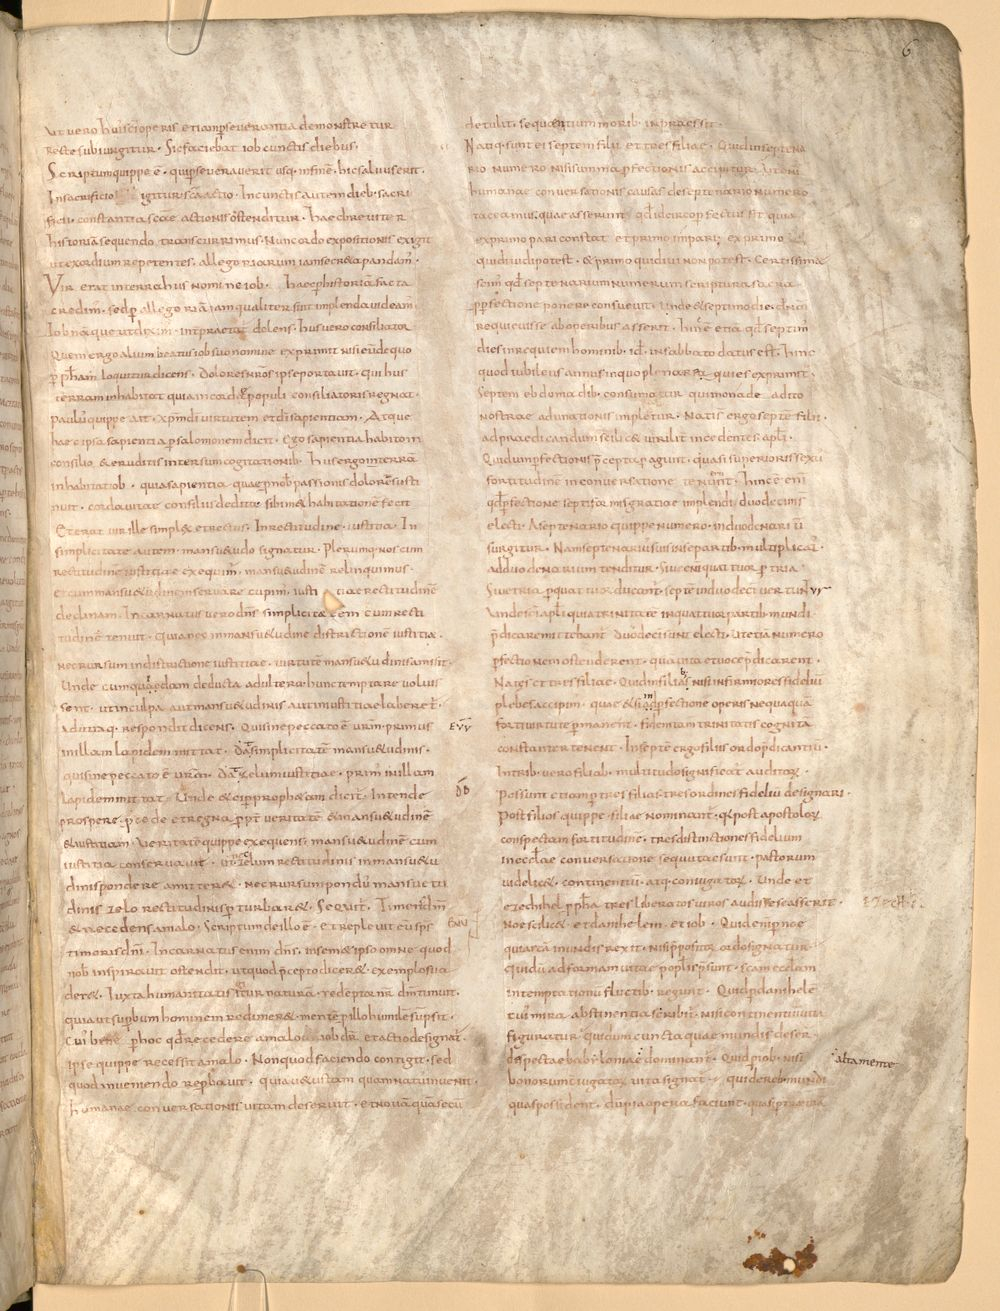 6
Ut vero huius sc̄i operis etiam p̱severantia demonstretur
recte subiungitur · Sic faciebat iob cunctis diebus ·
Scriptum quippe ē · qui p̱severaverit usq· in finē · hic salvus erit ·
In sacrificio igitur sc̄a actio · In cunctis autem dieb· sacri
ficii · constantia sc̄ae actionis ostenditur · Haec breviter
historiā sequendo transcurrimus · Nunc ordo expositionis exigit
ut exordium repetentes · allegoriarum iam secreta pandam̄ ·
Vir erat in terra hus nomine iob · Haec p̱ historiam facta
credim̄ · sed p̱ allegoriā iam qualiter sint implenda videam̄
Iob namque ut dixim̄ · interpraetat̄ dolens · hus vero consiliator
Quem ergo alium beatus iob suo nomine exprimit nisi eūde quo
p̱ pphām loquitur dicens · Dolores nr̄os ipse portavit · Qui hus
terram inhabitat quia in corde populi consiliatoris regnat ·
Paulus quippe ait · xp̄m dī virtutem et dī sapientiam · Atque
haec ipsa sapientia p̱ salomonem dicit · Ego sapientia habito in
consilio & eruditis intersum cogitationib· Hus ergo in terrā
inhabitat iob · quia sapientia quae p̱ nob̄ passionis dolorē susti
nuit · corda vitae consiliis dedita · sibimet habitationē fecit
Et erat vir ille simplex et rectus · In rectitudine · iustitia · In
simplicitate autem · mansuetudo signatur · Plerumq· nos cum
rectitudinē iustitiae exequim̄ · mansuetudinē relinquimus ·
et cum mansuetudinē servare cupim̄ · iustitiae rectitudinē
declinam̄ · Incarnatus vero dn̄s simplicitatem cum recti
tudinē tenuit · Quia nec in mansuetudine districtionē iustitiae ·
nec rursum in districtione iustitiae · virtutē mansuetudinis amisit ·
Unde cum quidam deducta adultera hunc temptare voluis
sent · ut in culpa aut mansuetudinis aut iniustitiae laberet̄ ·
ad utraq· respondit dicens · Qui sine peccato ē vrm̄ · primus
in illam lapidem mittat · Dat simplicitatē mansuetudinis ·
qui sine peccato ē vrm̄ · Dat zelum iustitiae · prim̄ in illam
lapidem mittat · Unde & ei p̱ prophetam dicit̄ · Intende
prospere p̱cede et regna p̱pt̄ veritatē & mansuetudinē
& iustitiam · Veritatē quippe exequens · mansuetudinē cum
iustitia conservavit · ut nec zelum rectitudinis in mansuetu
dinis pondere amitteret · nec rursum pondus mansuetu
dinis zelo rectitudinis p̱turbaret · Sequit̄ · Timens dm̄
& recedens a malo · Scriptum de illo ē · et replevit eū sps̄
timoris dn̄i · Incarnatus enim dn̄s · in semetipso omne quod
nob̄ inspiravit ostendit · ut quod p̱cepto diceret · exemplo sua
deret · Iuxta humanitatis igitur naturā · redemptor nr̄ dm̄ timuit ·
quia ut sup̱bum hominem redimeret · mentē p̱ illo humilē sūpsit ·
Cui' bene p̱ hoc qd̄ recedere a malo iob dr̄ · et actio designat̄ ·
Ipse quippe recessit a malo · Non quod faciendo contigit · sed
quod inveniendo reprobavit · quia vetustam quam natus invenit
humanae conversationis vitam deseruit · et novā quā secū
Evv
dd
Env
detulit · sequentium morib· inpraessit ·
Natiq· sunt ei septem filii et tres filiae · Quid in septena
rio numero nisi summa p̱fectionis accipitur · Ut enī
humanae conversationis causas de septenario numero
taceamus · quae asserunt qd̄ idcirco p̱fectus sit quia
ex primo pari constat et primo impari · ex primo
qui dividi potest · & primo qui dividi non potest · Certissime
scim̄ qd̄ septenarium numerum scriptura sacra
p̱ p̱fectione ponere consuevit · Unde & septimo die dn̄m
requievisse ab operibus asserit · hinc ē etiā qd̄ septim̄
dies in requiem hominib· id ē · in sabbato datus est · hinc
quod iubileus annus in quo plenaria quies exprimit̄ ·
Septem ebdomadib· consumat̄ qui monade addito
nostrae adunationis impletur · Natis ergo septē filii ·
ad praedicandum scilicet virilit̄ incedentes apl̄i ·
Qui dum p̱fectionis p̄cepta p̱agunt · quasi superioris sexū
fortitudinē in conversatione tenuerunt · Hinc ē enī
qd̄ p̱fectione septiformis gratiae implendi duodecimi
electi · A septenario quippe numero in duodenariū
surgitur · Nam septenarius suis in se partib· multiplicat̄ ·
ad duodenarium tenditur · Sive enī quattuor p̱ tria ·
Sive tria p̱ quattuor ducant̄ · septē in duodeci vertunt̄
Unde sc̄i apl̄i quia trinitatē in quattuor partib· mundi
p̄dicare mittebant̄ · duodeci sunt electi · ut etiā numero
p̱fectionem ostenderent · quā vita et voce p̄dicarent ·
Natis et tres filiae · Quid in filiabus nisi infirmiores fidelium
plebes accipim̄ · quae & si in p̱fectione operis nequaquā
forti virtute p̱manent · fidem tam trinitatis cognitā
constanter tenent · In septē ergo filiis ordo p̄dicantiū ·
In trib· vero filiab· multitudo significat̄ auditorū ·
Possunt etiam p̱ tres filias tres ordines fideliū designari ·
Post filios quippe filiae nominant̄ · quia post apostolorū
conspectam fortitudinē · tres distinctiones fidelium
in eccl̄ae conversatione sequutae sunt · pastorum
videlicet · continentiū · atq· coniugatorū · Unde et
ezechihel p̱pheta tres liberatos viros audisse se asserit ·
Noe scilicet et danihelem · et iob · Quid enī p̱ noe
qui arcā in undis rexit · nisi p̱positorū ordo signatur ·
Qui dū ad formam vitae populis p̄sunt · sc̄am eccl̄am
in temptationū fluctib· regunt · Quid p̱ danihele
cui' mira abstinentia scribit̄ · nisi continentiū vita
figuratur · qui dum cuncta quae mundi s̄ deser
despectae babyloniae dominant̄ · Quid p̱ iob · nisi
bonorum iugatorū vita signat̄ · qui de reb· mundi
quas possident · dū pia opera faciunt · quasi p̱ terrena
Ezechi
altamente